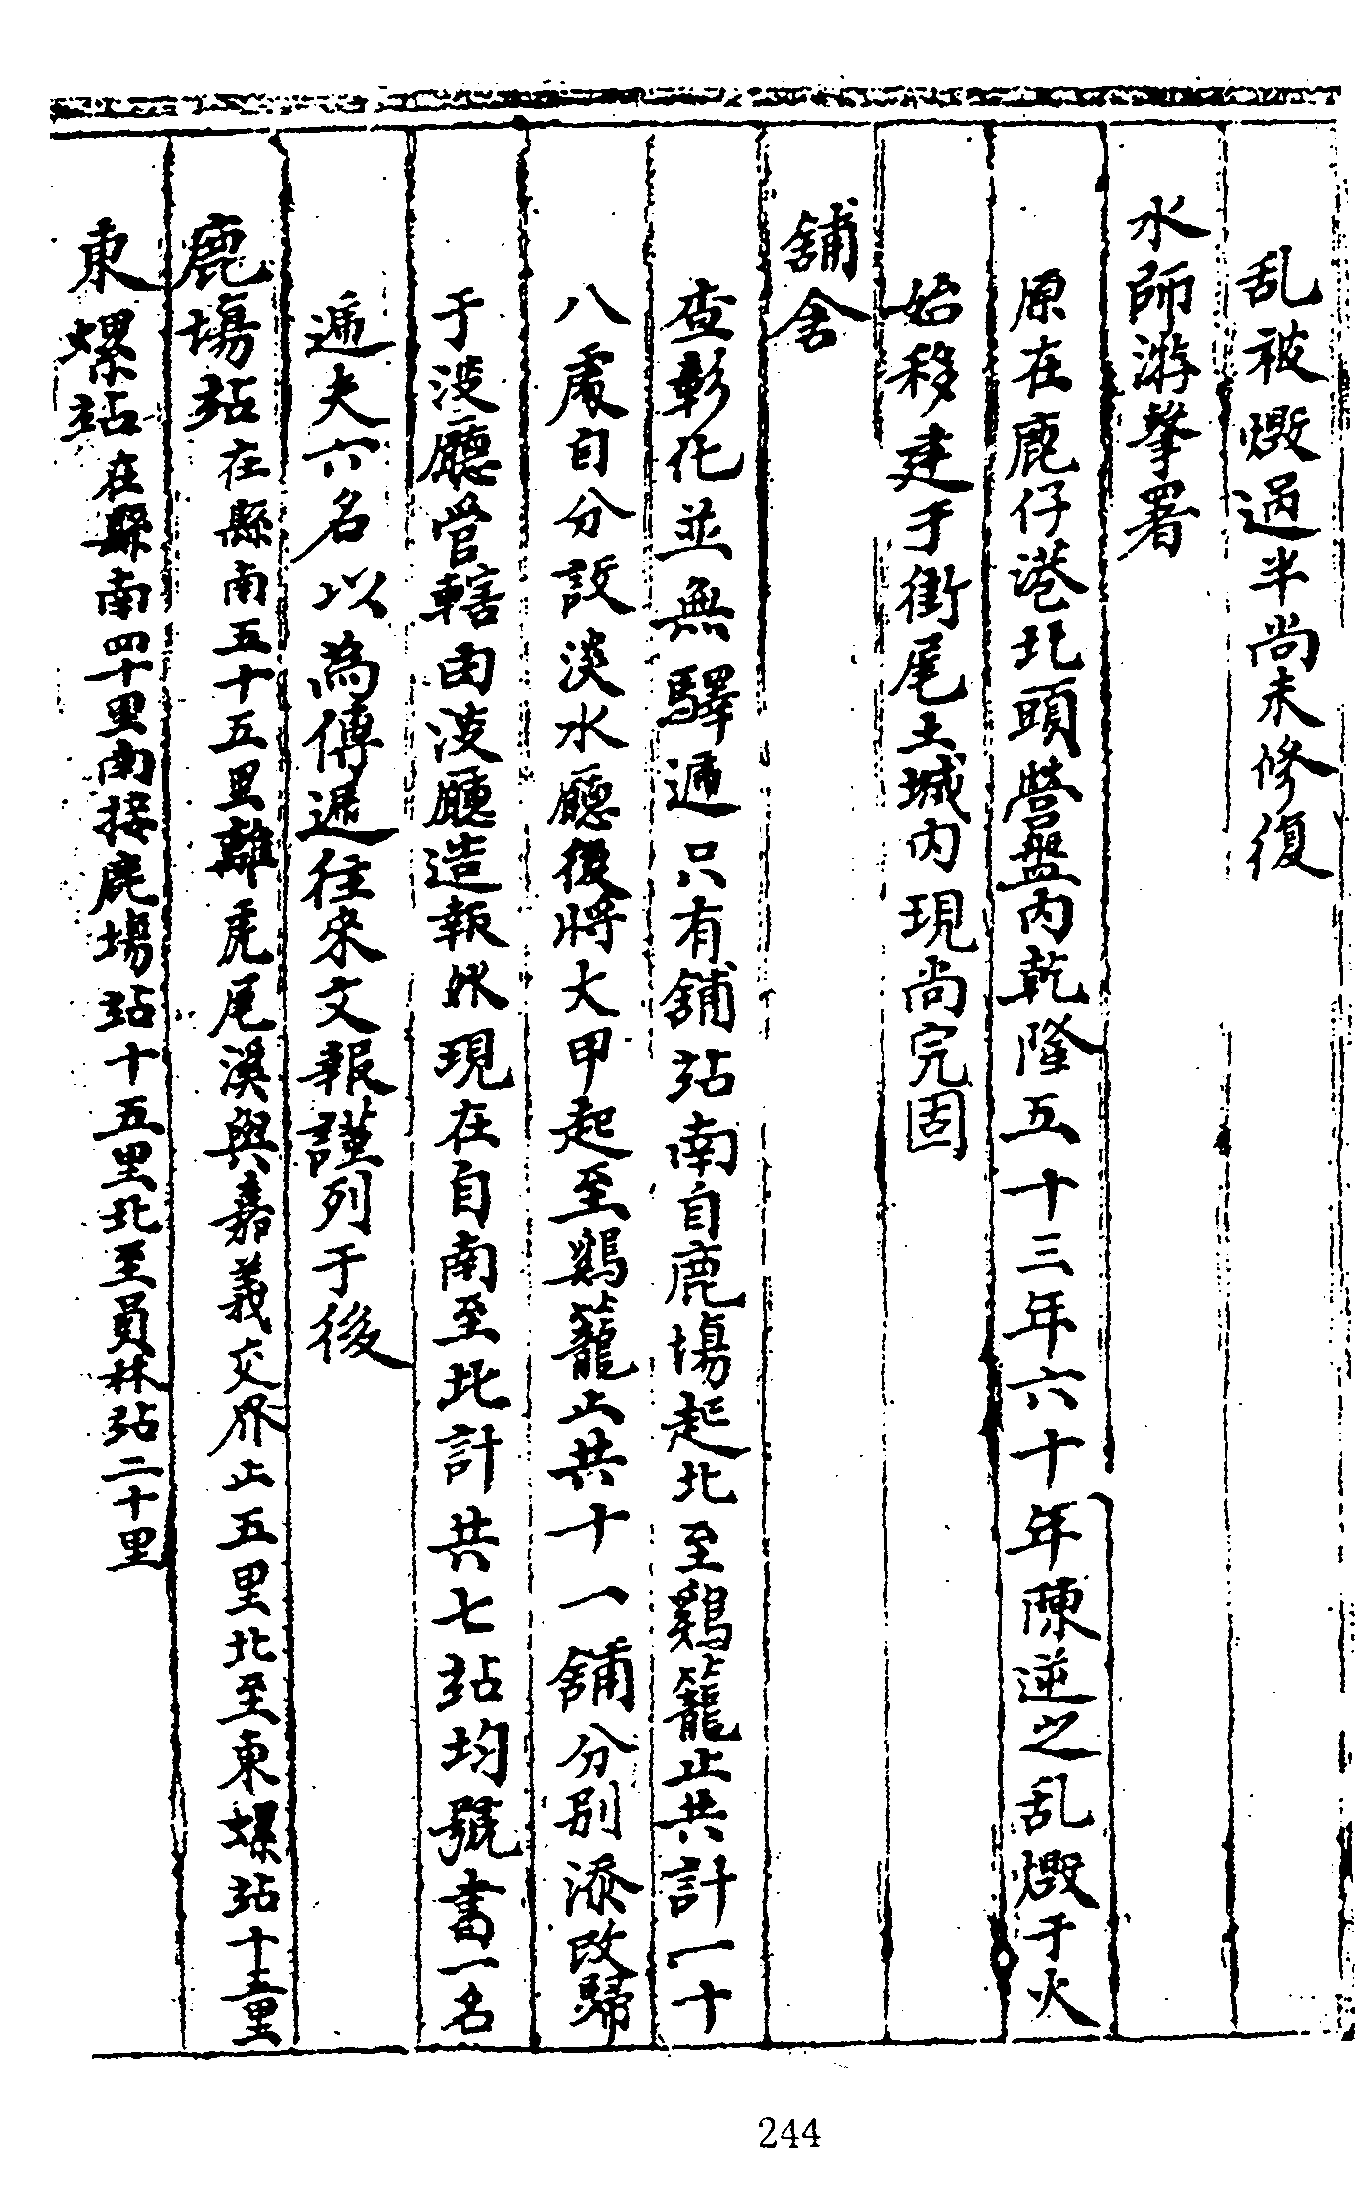 乱被燬過半尚未修復
水師游擊署
原在鹿仔港北頭營盤內乾隆五十三年六十年陳逆之乱燬于火
始移建于街尾土城內現尚完固
舖舍
查彰化並無驛遞只有舖站南自鹿塲起北至鷄籠止共計一十
八處自分設淡水廳後將大甲起至鷄籠止共十一舖分別添改歸
于淡廳管轄由淡廳造報外現在自南至北計共七站均號書一名
遞夫六名以為傳遞往來文報謹列于後
鹿塲站在縣南五十五里離虎尾溪與嘉義交界止五里北至東螺站十五里
東螺站在縣南四十里南接鹿塲站十五里北至員林站二十里
244